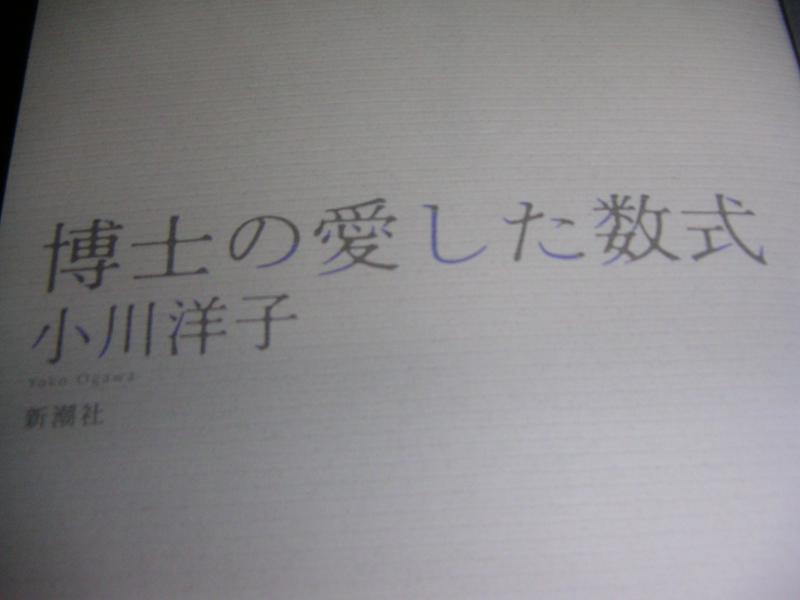 博士の愛した数式
小川洋子
Yoko Ogawa
新潮社